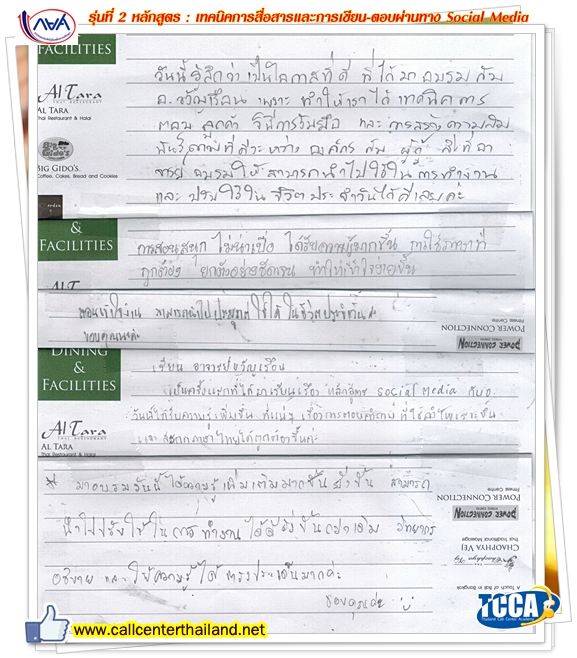 กยศ.
รุ่นที่ 2 หลักสูตร : เทคนิคการสื่อสารและการเขียน-ตอบผ่านทาง Social Media
FACILITIES
Al Tara
THAI RESTAURANT
AL TARA
Thai Restaurant & Halal
Big Gido's
BIG GIDO'S
Coffee, Cakes, Bread and Cookies
วันนี้รู้สึกว่าเป็นโอกาสที่ดี ที่ได้มาอบรมกับ
อ.ขวัญเรือน เพราะทำให้เราได้เทคนิค การ
ตอบลูกค้า วิธีการรับมือ และ การสร้างความสัม
พันธ์ที่ดีระหว่าง องค์กร กับ ผู้กู้ สิ่งที่อา
จารย์ อบรมให้สามารถนำไปใช้ในการทำงาน
และ ปรับใช้ใน ชีวิตประจำวันได้ดีเลยค่ะ
&
FACILITIES
การสอนสนุก ไม่น่าเบื่อ ได้รับความรู้มากขึ้น การใช้ภาษาที่
ถูกต้อง ยกตัวอย่างชัดเจน ทำให้เข้าใจง่ายขึ้น
สอนเข้าใจง่าย สามารถนำไปประยุกต์ใช้ได้ ในชีวิตประจำวันค่ะ
ขอบคุณนะค่ะ
POWER CONNECTION
Fitness Centre
DINING
&
FACILITIES
Al Tara
THAI RESTAURANT
AL TARA
Thai Restaurant & Halal
เรียน อาจารย์ขวัญเรือน
เป็นครั้งแรกที่ได้มาเรียนเรื่อง หลักสูตร social media กับอ.
วันนี้ได้รับความรู้เพิ่มขึ้น
และสะกดภาษาไทยได้ถูกต้องขึ้นค่ะ
* มาอบรมวันนี้ได้ความรู้เพิ่มเติมมากขึ้นยิ่งขึ้น สามารถ
นำไปปรับใช้ในการทำงานได้ดียิ่งขึ้นกว่าเดิม วิทยากร
อธิบาย และให้ความรู้ได้ตรงประเด็นมากค่ะ
ขอบคุณค่ะ
POWER CONNECTION
Fitness Centre
POWER CONNECTION
CHAOPHYA VEJ
Thai Traditional Massage
A Touch of Bali in Bangkok
www.callcenterthailand.net
TCCA
Thailand Call Center Academy